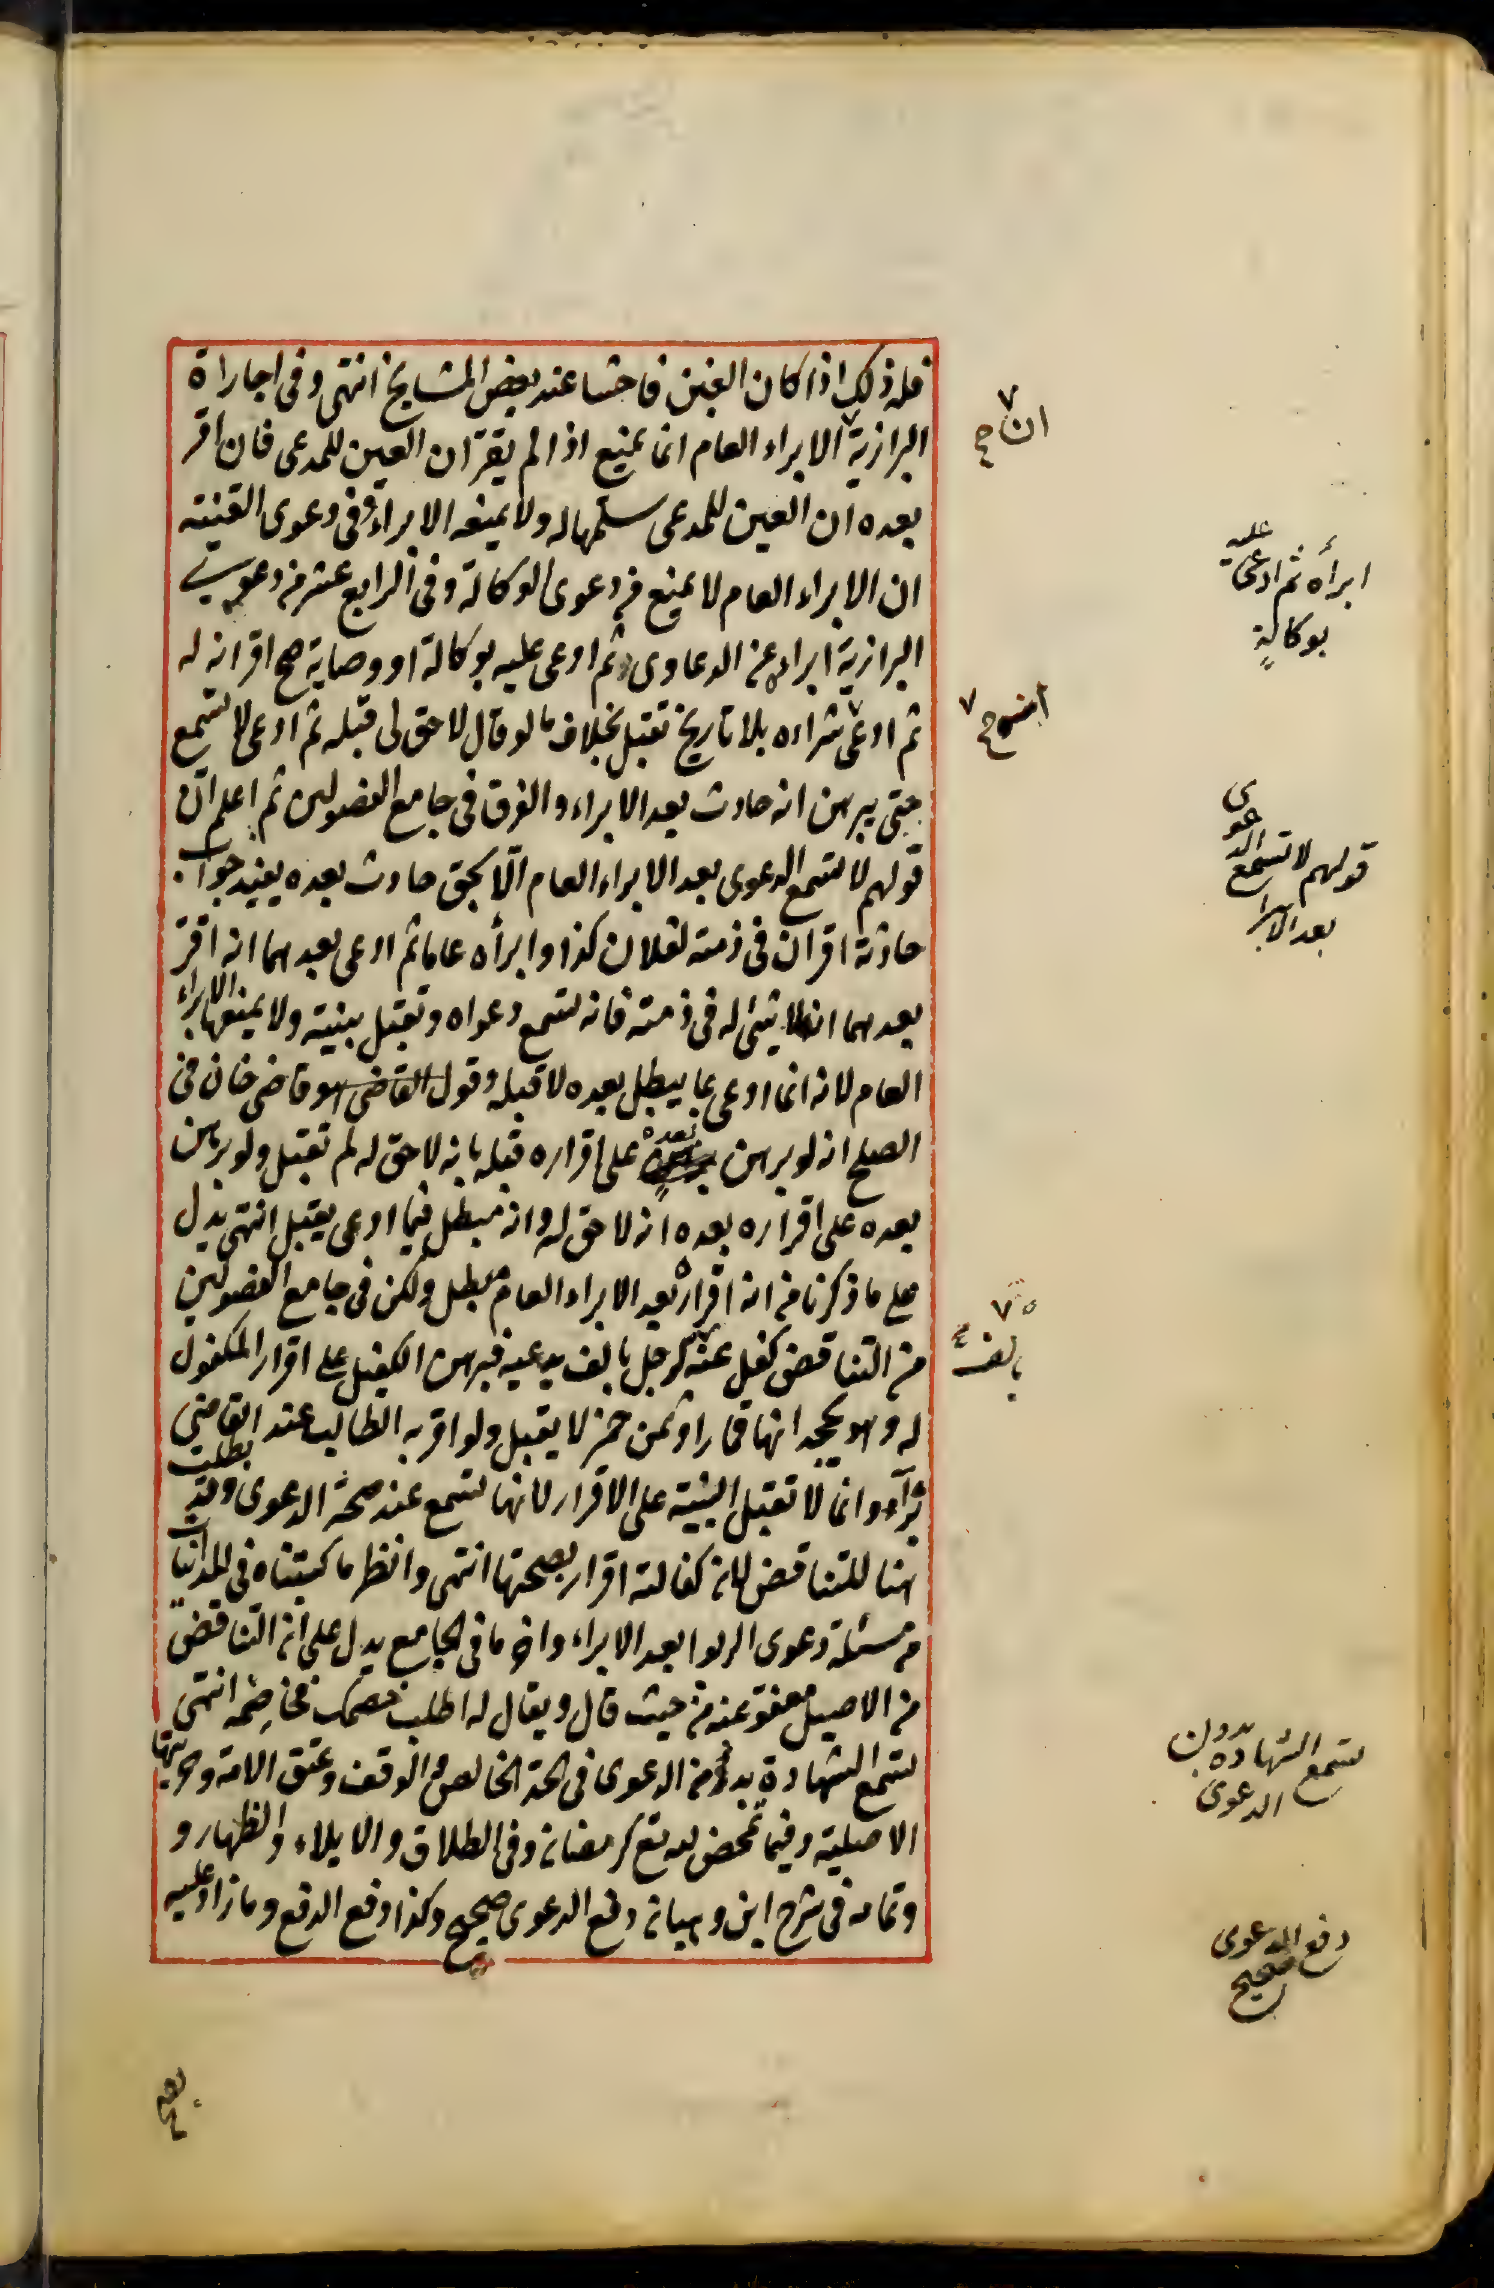 فله ذلك اذا كان الغبن فاحشا عند بعض المشايخ انتهى وفى اجاراة
البزازية الابراء العام انما يمنع اذا لم يقر ان العين للمدعى فان اقر
بعده ان العين للمدعى سلمها له ولا يمنعه الابراء وفى دعوى القنيته
ان الابراء العام لا يمنع من دعوى الوكالة وفى الرابع عشر من دعوى
البزازية ابراه عن الدعاوى ثم ادعى عليه بوكالة او وصاية صح اقر انه له
ثم ادعى شراءه بلا تاريخ تقبل بخلاف ما لو قال لا حق لى قبله ثم ادعى لا تسمع
حتى يبرهن انه حادث بعد الابراء والفرق فى جامع الفصولين ثم اعلم ان
قولهم لا تسمع الدعوى بعد الابراء العام الا بحق حادث بعده يفيد جواب
حادثة اقر ان فى ذمته لفلان كذا وابرأه عاما ثم ادعى بعدهما انه اقر
بعدهما انه لا شئ له فى ذمته فانه تسمع دعواه وتقبل بينته ولا يمنعها الابراء
العام لانه انما ادعى بما يبطل بعده لا قبله وقول القاضى هو قاضى خان فى
الصلح انه لو برهن بعده على اقراره قبله بانه لا حق له لم تقبل ولو برهن
بعده على اقراره بعده انه لا حق له وانه مبطل فيما ادعى يقبل انتهى يدل
على ما ذكرنا من انه اقراره بعد الابراء العام مبطل ولكن فى جامع الفصولين
من التناقض كفل عنه لرجل بالف يدعيه فبرهن الكفيل على اقرار المكفول
له وهو يجحد انها قمار او ثمن خمر لا يقبل ولو اقر به الطالب عند القاضى
برآء وانما لا تقبل البينة على الاقرار لانها تسمع عند صحة الدعوى وقد بطلت
هنا للتناقض لانه كفالته اقرار بصحتها انتهى وانظر ما كتبناه فى المداينات
من مسئلة دعوى الربوا بعد الابراء وان ما فى الجامع يدل على ان التناقض
من الاصيل معفو عنه من حيث قال ويقال له اطلب خصمك فخاصمه انتهى
تسمع الشهادة بدون الدعوى فى الحد الخالص والوقف وعتق الامة وحريتها
الاصلية وفيما تمحض لله تع كرمضان وفى الطلاق والايلاء والظهار و
وتمامه فى شرح ابن وهبان دفع الدعوى صحيح وكذا دفع الدفع وما زاد عليه
ان ح
ابرأه ثم ادعى عليه
بوكالةٍ
قولهم لا تسمع الدعوى
بعد الابراء
بالف
تسمع الشهادة بدون
الدعوى
دفع الدعوى
صحيح
يصح